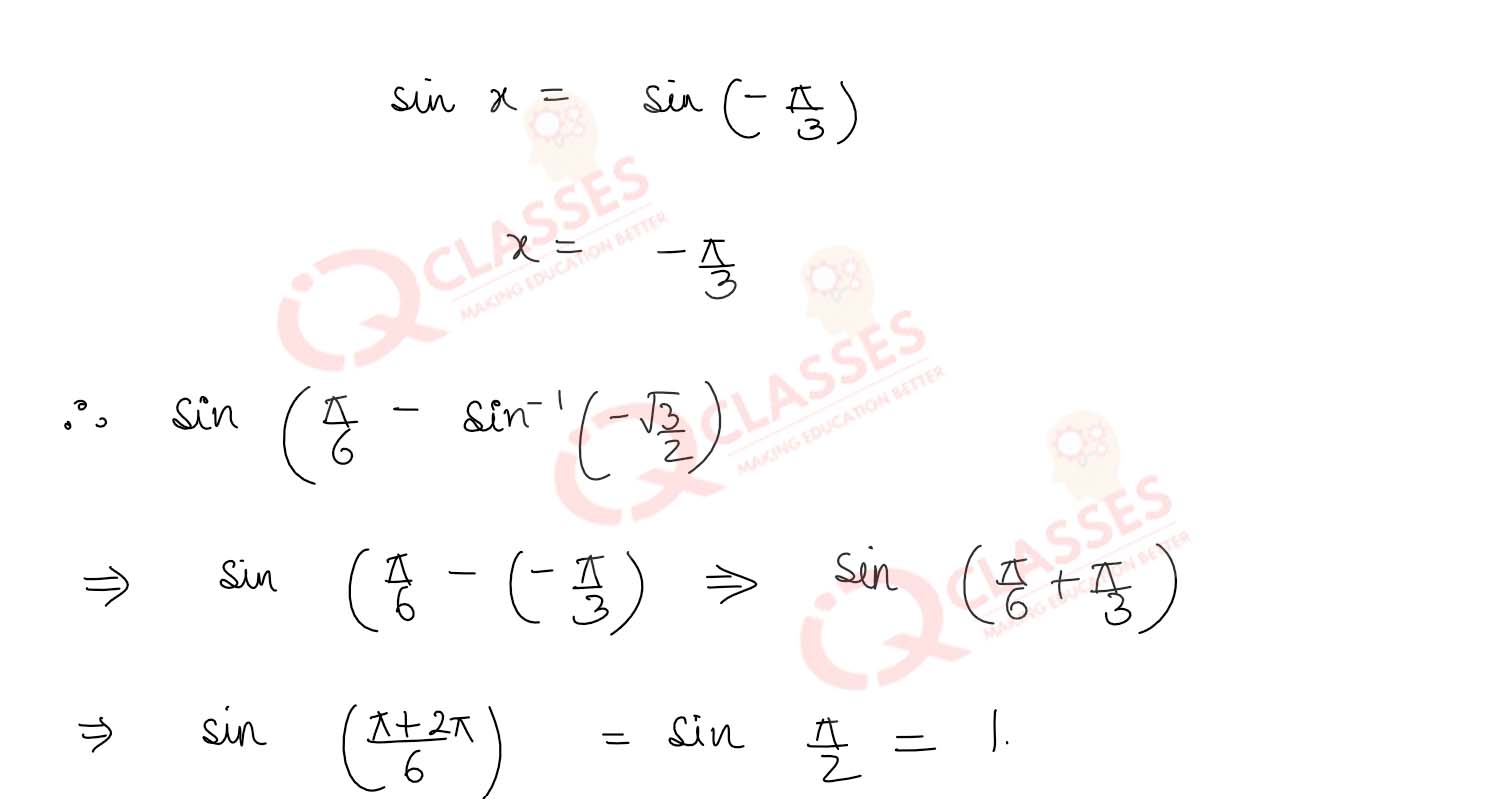 sin x = sin (- π/3)
x = - π/3
∴ sin (π/6 - sin⁻¹ (-√3/2)
⇒ sin (π/6 - (- π/3) ⇒ sin (π/6 + π/3)
⇒ sin (π+2π/6) = sin π/2 = 1.
iQ CLASSES
MAKING EDUCATION BETTER
iQ CLASSES
MAKING EDUCATION BETTER
iQ CLASSES
MAKING EDUCATION BETTER